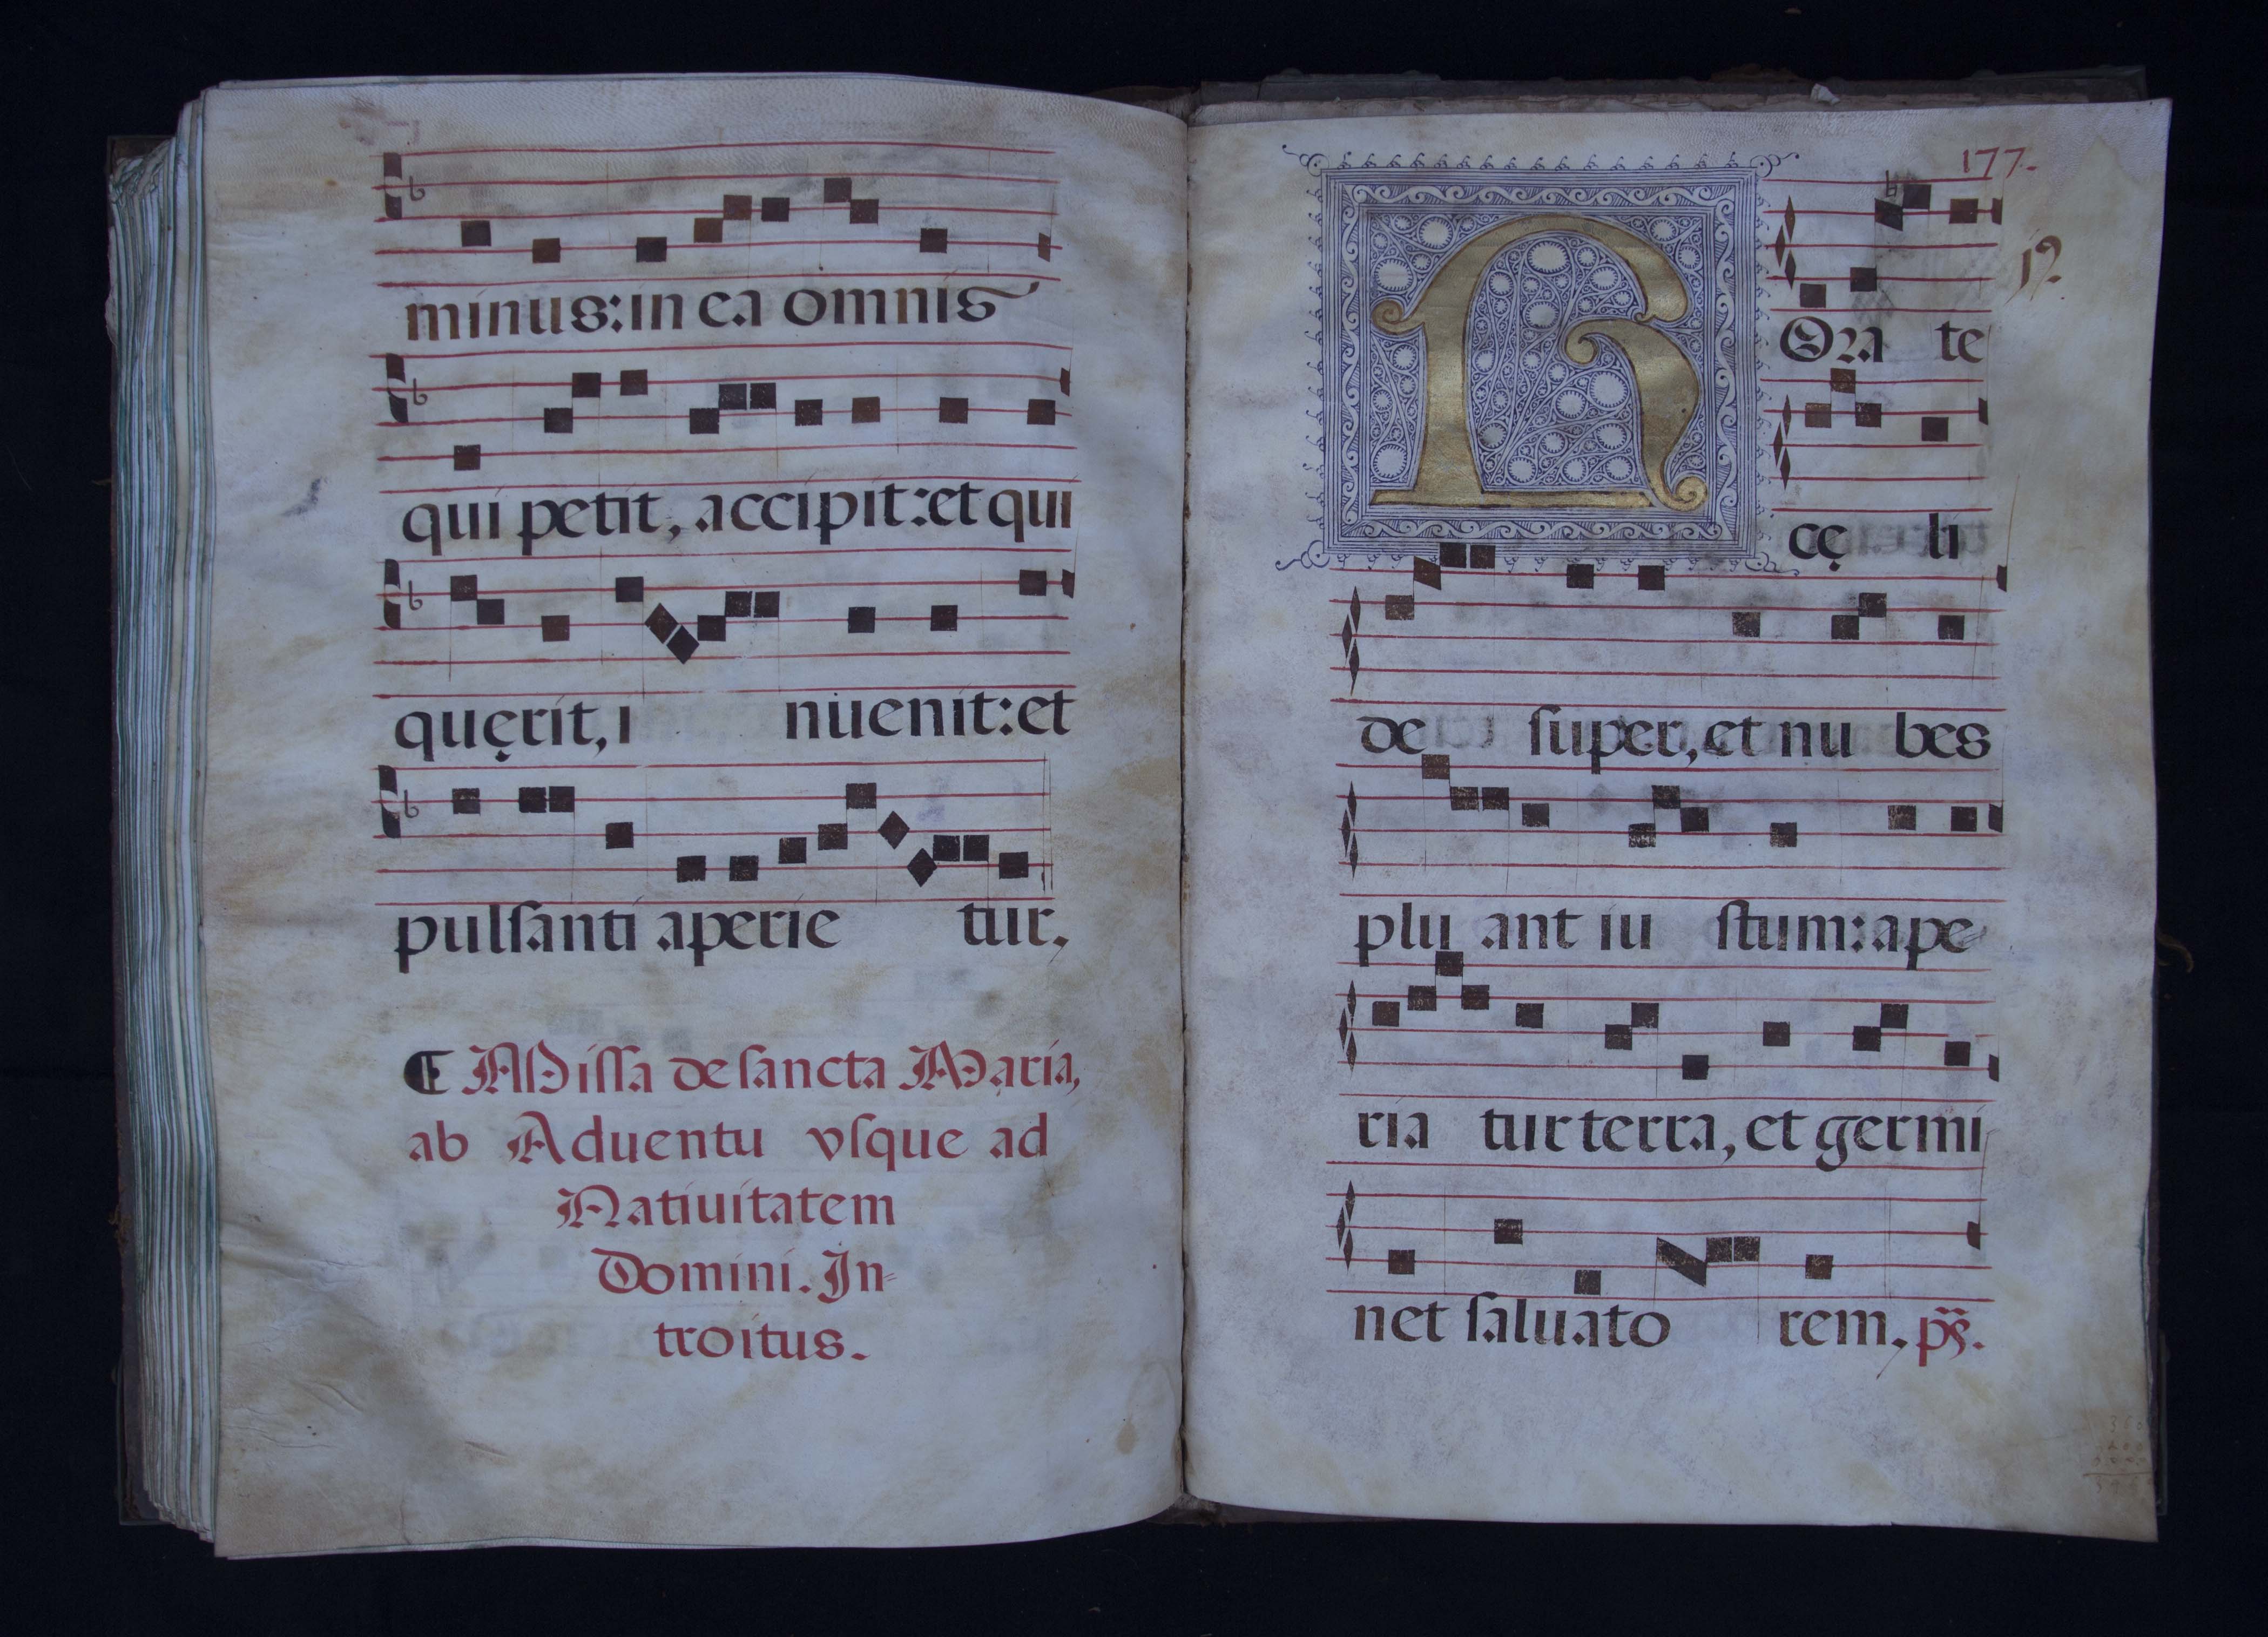 minus: in ea omnis
qui petit, accipit: et qui
quęrit, i nuenit: et
pulſanti aperie tur.
Miſſa de ſancta Maria,
ab Aduentu vſque ad
Natiuitatem
Domini. In=
troitus.
177.
R Ora te
cę li
de ſuper, et nu bes
plu ant iu ſtum: ape
ria tur terra, et germi
net ſaluato rem. ps.